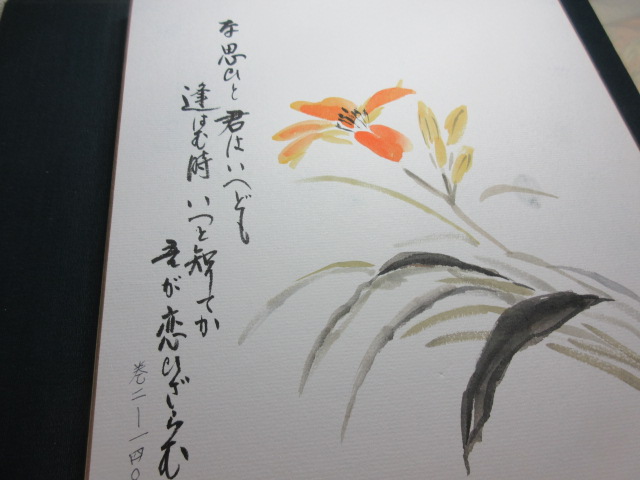 な思ひと君はいへども
逢はむ時いつと知てか
吾が恋ひざらむ
巻二ー一四〇